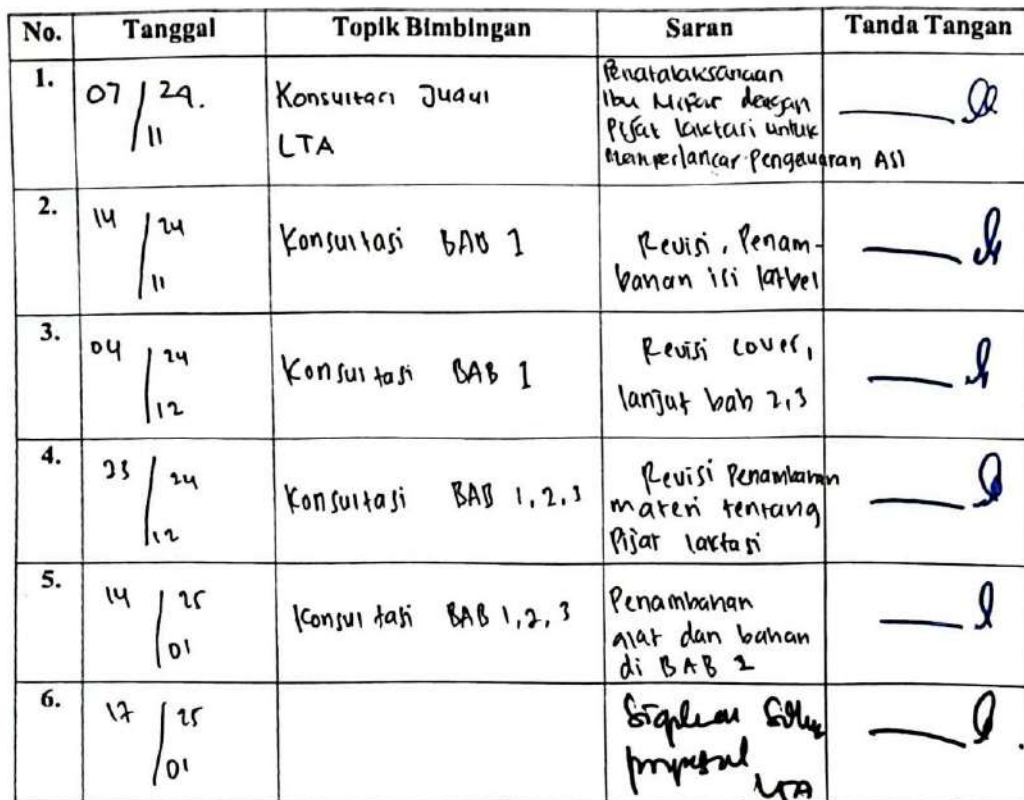 No. Tanggal Topik Bimbingan Saran Tanda Tangan
1. 07/11 24. Konsultasi Judul
LTA
Penatalaksanaan
Ibu Nifas dengan
Pijat laktasi untuk
memperlancar pengeluaran ASI
2. 14/11 24 Konsultasi BAB 1
Revisi, Penam-
bahan isi latbel
3. 04/12 24 Konsultasi BAB 1
Revisi cover,
lanjut bab 2,3
4. 23/12 24 Konsultasi BAB 1,2,3
Revisi Penambahan
materi tentang
Pijat laktasi
5. 14/01 25 Konsultasi BAB 1,2,3
Penambahan
alat dan bahan
di BAB 2
6. 17/01 25
Siapkan
proposal
LTA